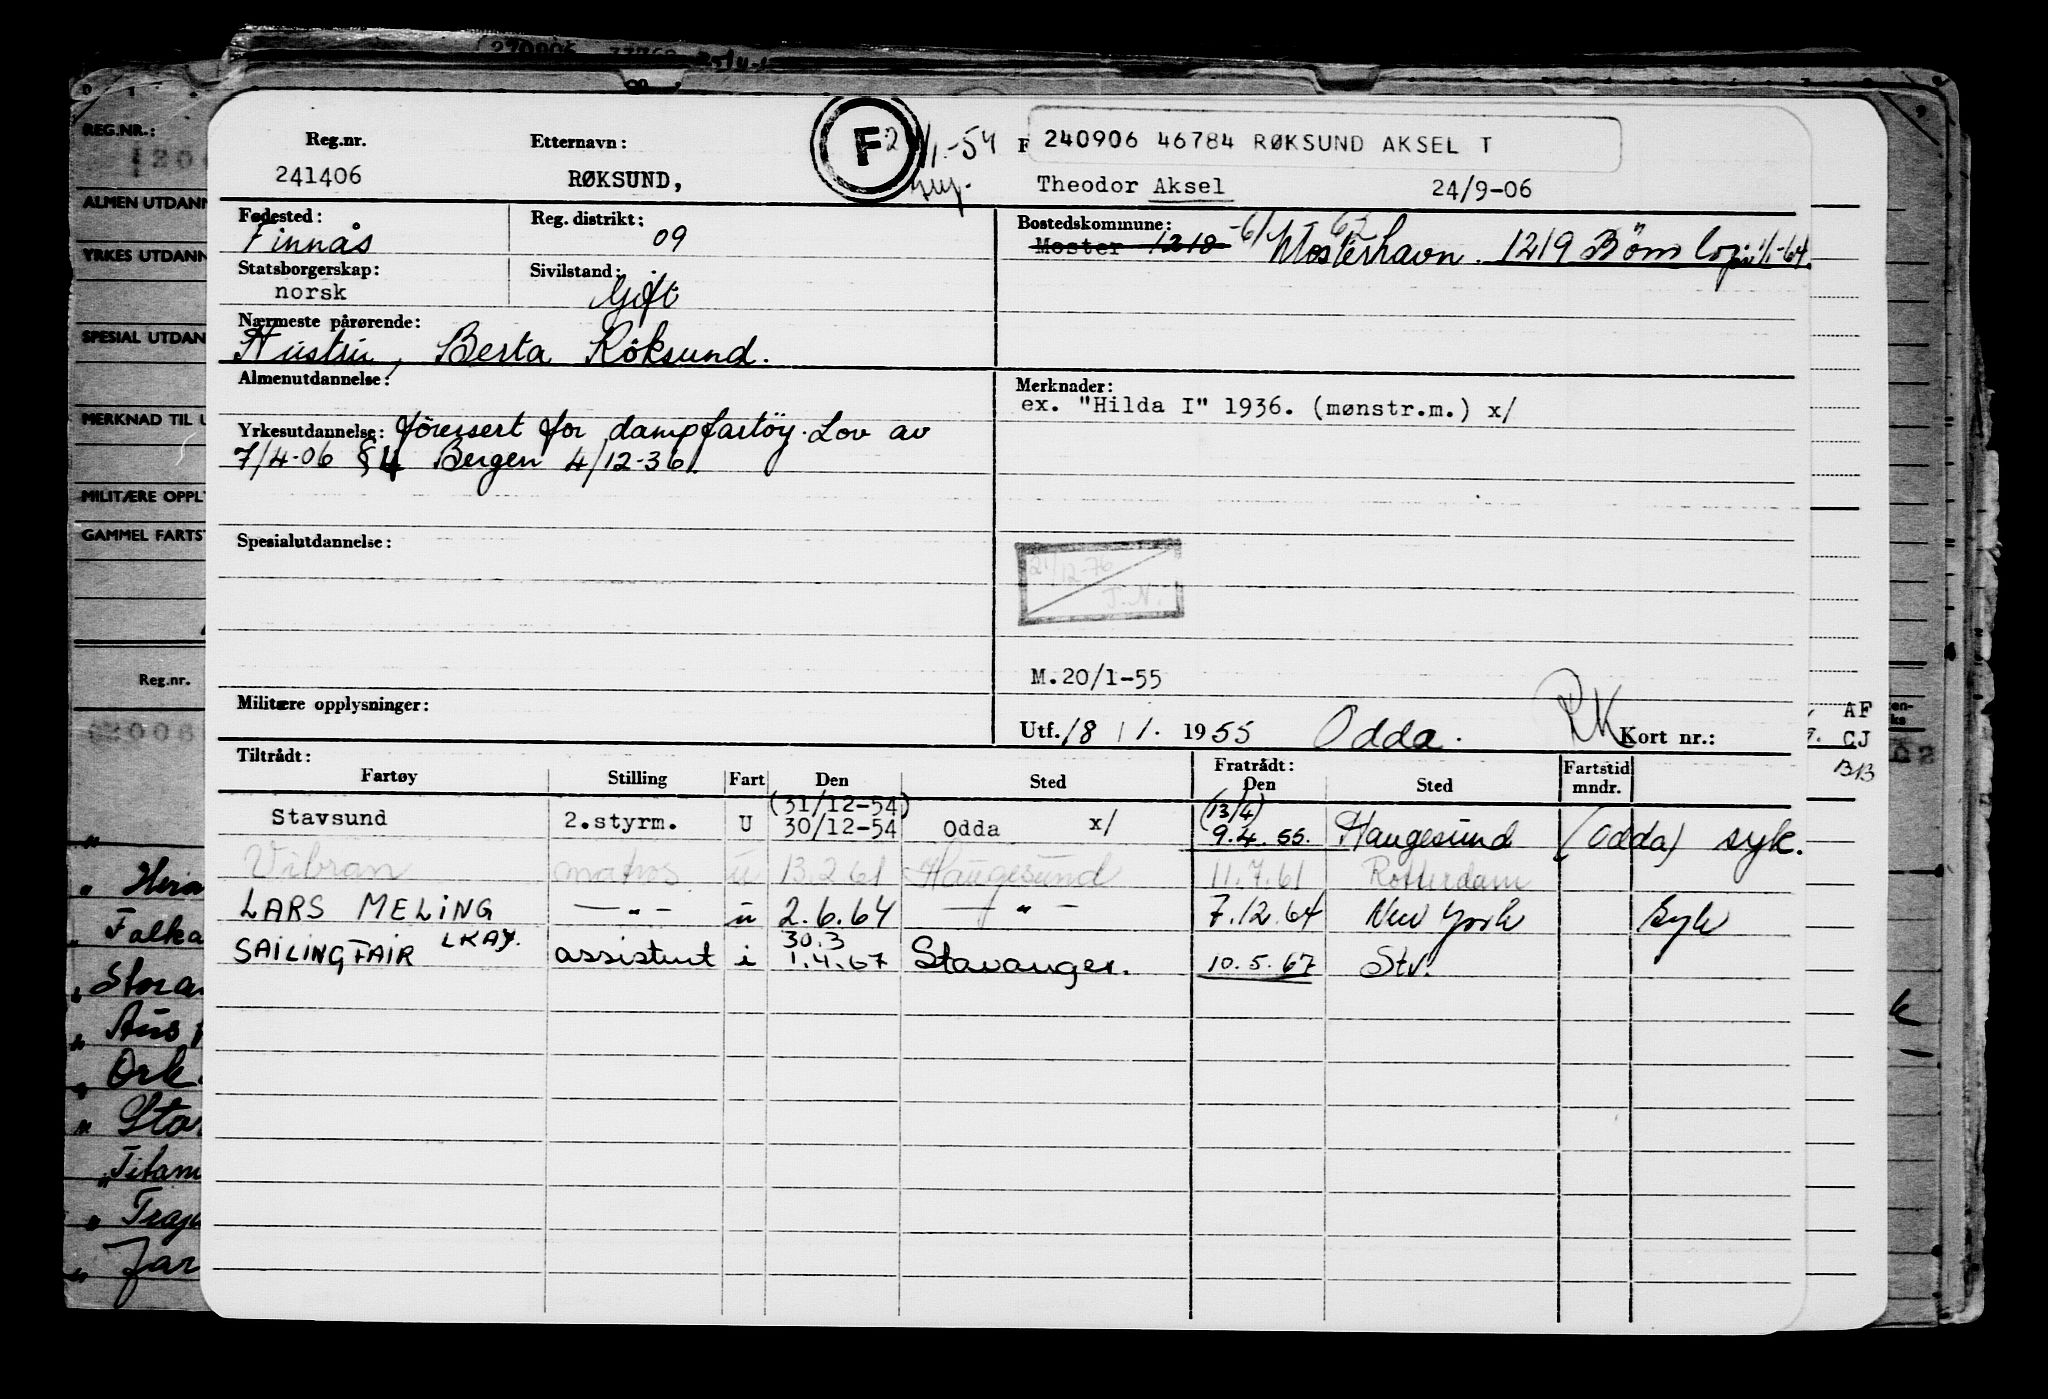 REG.NR.:
ALMEN UTDANN
YRKES UTDANN
SPESIAL UTDAN
MERKNAD TIL U
MILITÆRE OPPL
GAMMEL FARTS
Reg.nr.
Reg.nr. Etternavn: F 1-54 F 240906 46784 RØKSUND AKSEL T
241406 RØKSUND, Theodor Aksel 24/9-06
Fødested: Reg. distrikt: Bostedskommune:
Finnås 09 Moster 1218 -61 Mosterhavn. 1219 Bømlo 1/1-64.
Statsborgerskap: Sivilstand:
norsk Gift
Nærmeste pårørende:
Hustru, Berta Röksund.
Almenutdannelse: Merknader:
ex. "Hilda I" 1936. (mønstr.m.) x/
Yrkesutdannelse: förersert for dampfartöy. Lov av
7/4-06 § 4 Bergen 4/12-36.
Spesialutdannelse:
21/12-76
J.N.
M.20/1-55
Militære opplysninger: Utf. 18/1. 1955 Odda. RK Kort nr.:
AF
CJ
BB
Tiltrådt: Fratrådt:
Fartøy Stilling Fart Den Sted Den Sted Fartstid mndr.
(31/12-54) (13/4)
Stavsund 2.styrm. U 30/12-54 Odda x/ 9.4.55. Haugesund (Odda) syk.
Vibran matros u 13.2.61 Haugesund 11.7.61 Rotterdam
LARS MELING —„— u 2.6.64 —„— 7.12.64 New York syk
30.3
SAILINGFAIR LKAY. assistent i 1.4.67 Stavanger. 10.5.67 Stv.